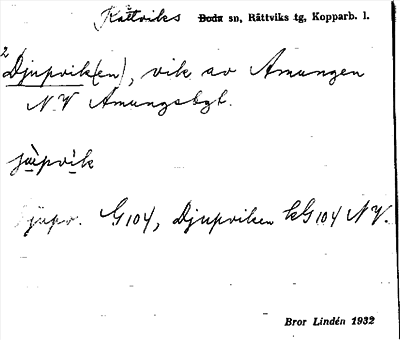 Rättviks Boda sn, Rättviks tg, Kopparb. l.
2 Djupvik(en), vik av Amungen
N.V Amungsbyl.
jùpvìk
Djupv. G104, Djupviken kG104 NV.
Bror Lindén 1932